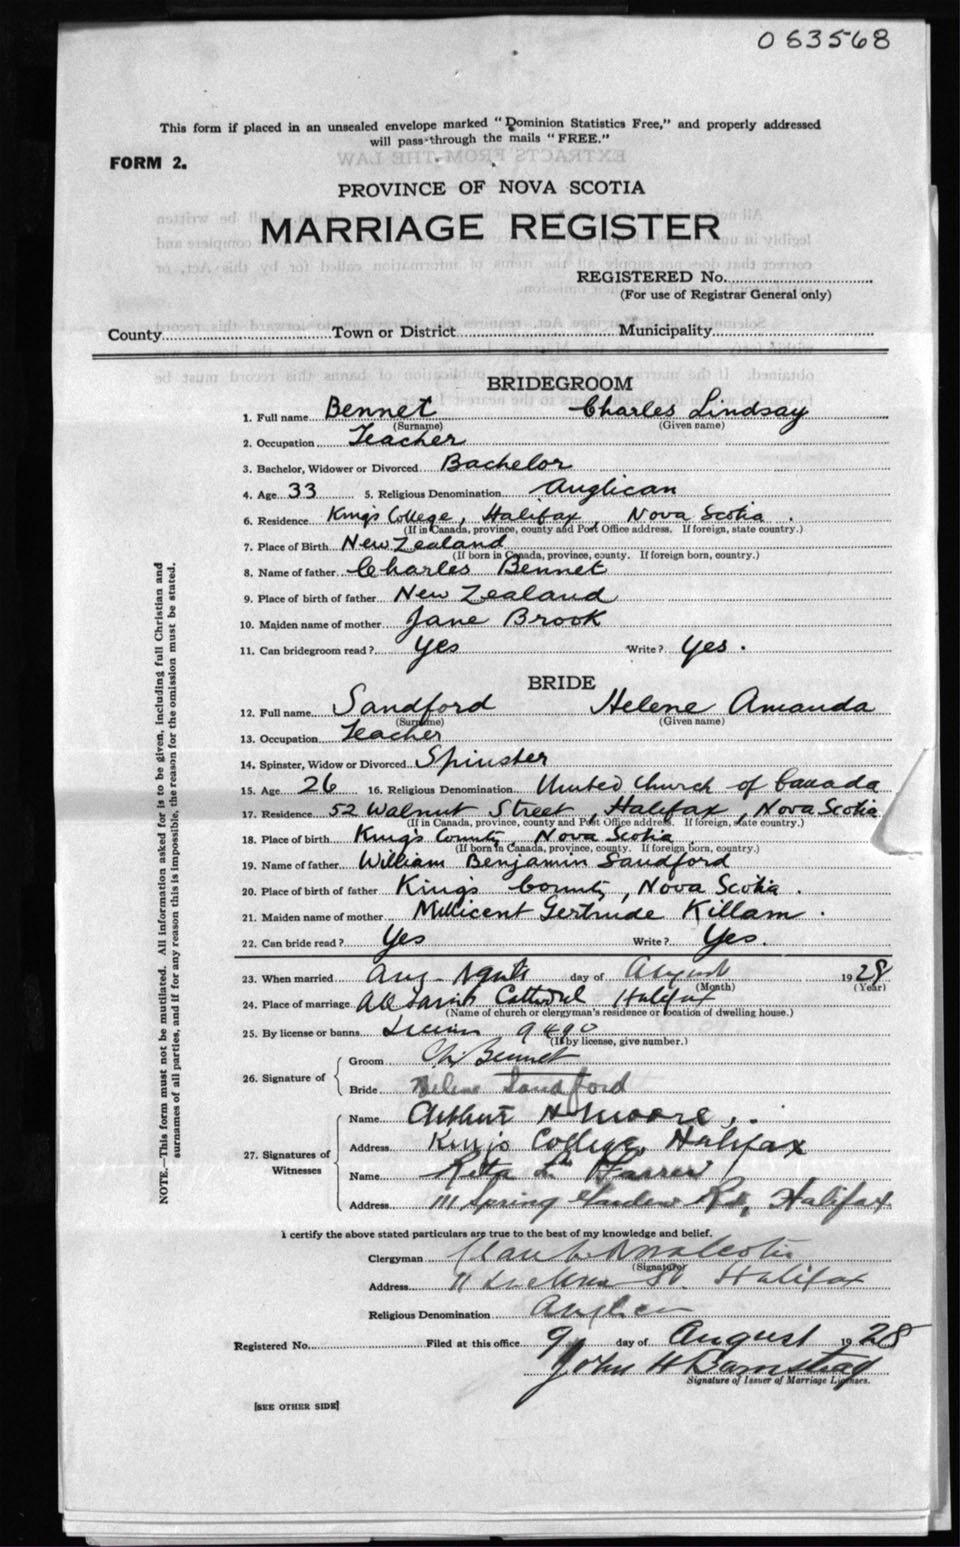 063568
This form if placed in an unsealed envelope marked "Dominion Statistics Free," and properly addressed
will pass through the mails "FREE."
FORM 2.
PROVINCE OF NOVA SCOTIA
MARRIAGE REGISTER
REGISTERED No.
(For use of Registrar General only)
County Town or District Municipality
BRIDEGROOM
1. Full name Bennet Charles Lindsay
(Surname) (Given name)
2. Occupation Teacher
3. Bachelor, Widower or Divorced Bachelor
4. Age 33 5. Religious Denomination Anglican
6. Residence King's College, Halifax, Nova Scotia.
(If in Canada, province, county and Post Office address. If foreign, state country.)
7. Place of Birth New Zealand
(If born in Canada, province, county. If foreign born, country.)
8. Name of father Charles Bennet
9. Place of birth of father New Zealand
10. Maiden name of mother Jane Brook
11. Can bridegroom read? yes Write? yes.
BRIDE
12. Full name Sandford Helene Amanda
(Surname) (Given name)
13. Occupation Teacher
14. Spinster, Widow or Divorced Spinster
15. Age 26 16. Religious Denomination United Church of Canada
17. Residence 52 Walnut Street, Halifax, Nova Scotia
(If in Canada, province, county and Post Office address. If foreign, state country.)
18. Place of birth King's County, Nova Scotia
(If born in Canada, province, county. If foreign born, country.)
19. Name of father William Benjamin Sandford
20. Place of birth of father King's County, Nova Scotia.
21. Maiden name of mother Millicent Gertrude Killam.
22. Can bride read? Yes Write? Yes.
23. When married day of August 1928
(Month) (Year)
24. Place of marriage All Saints Cathedral Halifax
(Name of church or clergyman's residence or location of dwelling house.)
25. By license or banns License 9490
(If by license, give number.)
26. Signature of
Groom Bennet
Bride Helene Sandford
27. Signatures of Witnesses
Name Arthur H Moore.
Address King's College, Halifax
Name Rita
Address 111 Spring Garden Rd, Halifax
I certify the above stated particulars are true to the best of my knowledge and belief.
Clergyman
(Signature)
Address Halifax
Religious Denomination Anglican
Registered No. Filed at this office 9 day of August 1928
John H Barnstead
Signature of Issuer of Marriage Licenses.
[SEE OTHER SIDE]
NOTE.—This form must not be mutilated. All information asked for is to be given, including full Christian and
surnames of all parties, and if for any reason this is impossible, the reason for the omission must be stated.